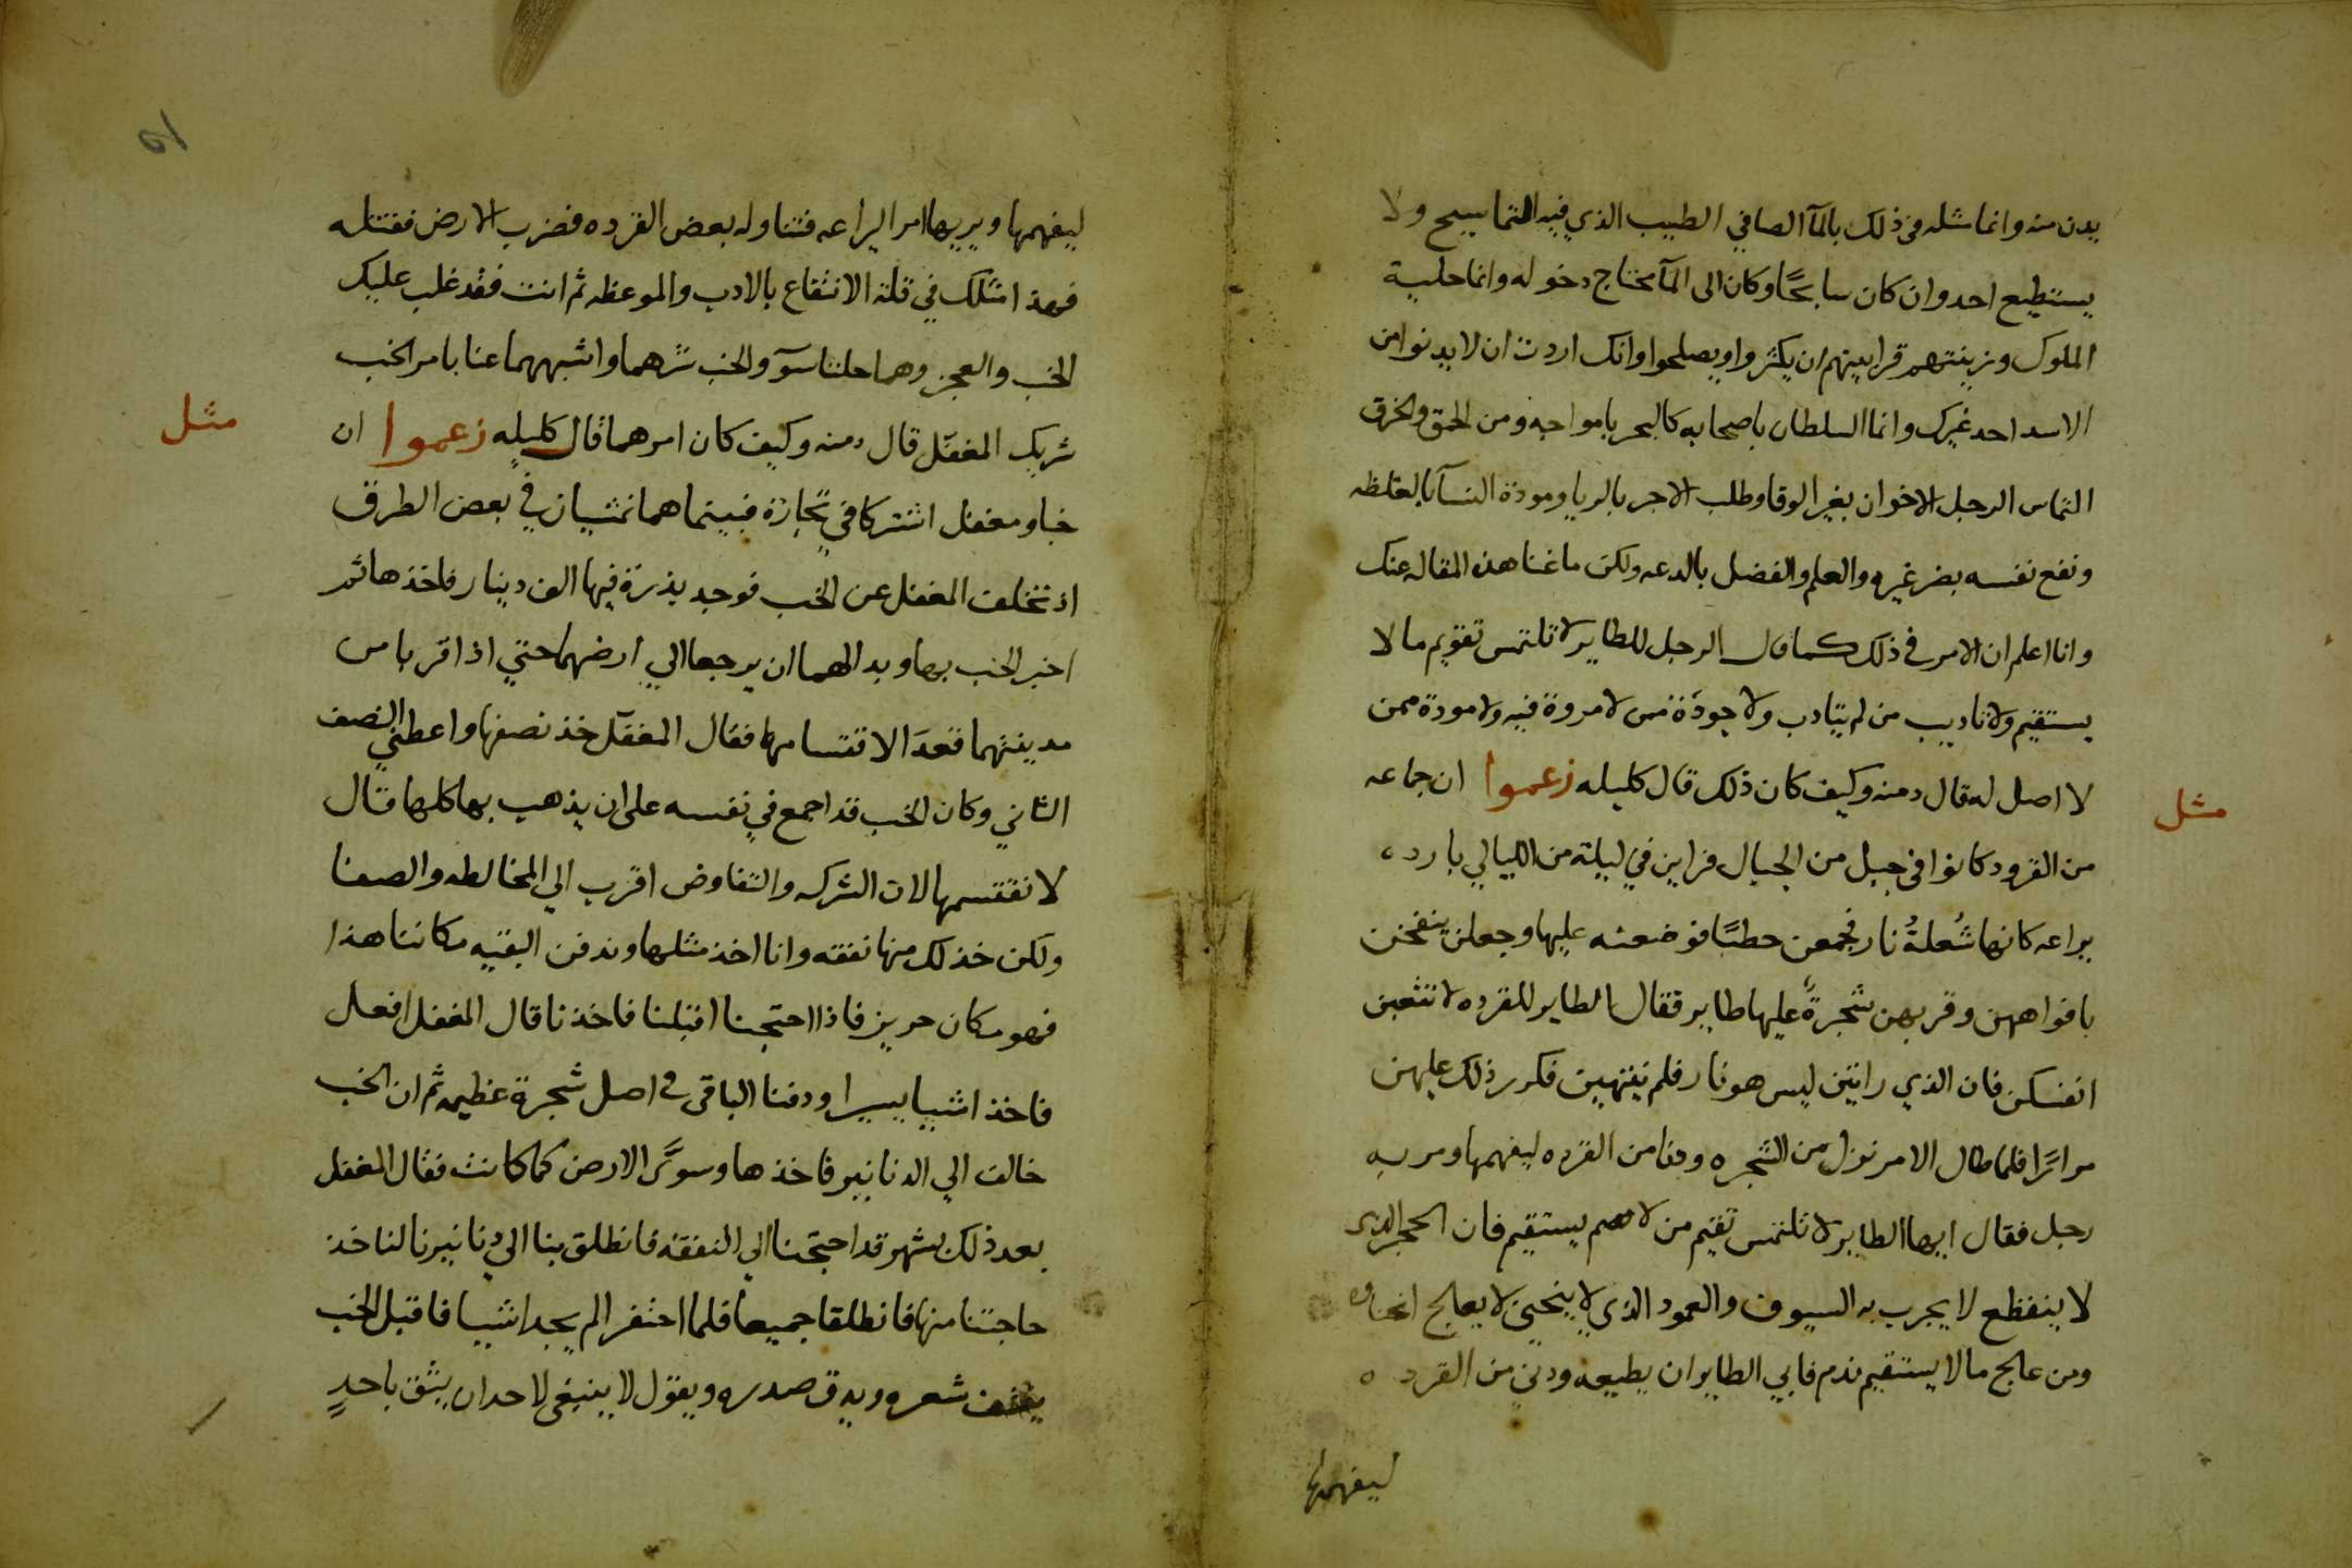 يدن منه وانما مثله في ذلك بالمآ الصافي الطيب الذي فيه التماسيح ولا
يستطيع احد وان كان سابحًا وكان الى المآ محتاج دخوله وانما حلية
الملوك وزينتهم قرابينهم ان يكثروا ويصلحوا وانك اردت ان لا يدنوا من
الاسد احد غيرك وانما السلطان باصحابه كالبحر بامواجه ومن الحمق والخرق
التماس الرجل الاخوان بغير الوفا وطلب الاجر بالريا ومودة النسآ بالغلظه
ونفع نفسه بضر غيره والعلم والفضل بالدعه ولكن ما غنا هذه المقاله عنك
وانا اعلم ان الامر في ذلك كما قال الرجل للطاير لا تلتمس تقويم ما لا
يستقيم ولا تاديب من لم يتادب ولا جودة من لا مروة فيه ولا مودة ممن
لا اصل له قال دمنه وكيف كان ذلك قال كليله زعموا ان جماعه
مثل
من القرود كانوا في جبل من الجبال فراين في ليلة من الليالي بارده
يراعه كانها شُعلةُ نار فجمعن حطبًا فوضعنه عليها وجعلن ينفخن
بافواههن وقربهن شجرةٌ عليها طاير فقال الطاير للقرده لا تتعبن
انفسكن فان الذي راتين ليس هو نار فلم ينتهين فكرر ذلك عليهن
مرارًا فلما طال الامر نزل من الشجره ودنا من القرده ليفهمها ومر به
رجل فقال ايها الطاير لا تلتمس تقيم من لا يستقيم فان الحجر الذي
لا ينقطع لا يجرب به السيوف والعمود الذي لا ينحني لا يعالج انحناوه
ومن عالج ما لا يستقيم ندم فابي الطاير ان يطيعه ودني من القرده
ليفهمها
ليفهمها ويريها امر اليراعه فتناوله بعض القرده فضرب الارض فقتله
فهذا مثلك في قلة الانتفاع بالادب والموعظه ثم انت فقد غلب عليك
الخب والعجز وهما حلتا سوٓ والخب شرهما واشبههما عنا بامر الخب
شريك المغفل قال دمنه وكيف كان امرهما قال كليله زعموا ان
مثل
خبا ومغفل اشتركا في تجارة فبينما هما تمشيان في بعض الطرق
اذ تخلف المغفل عن الخب فوجد بذرة فيها الف دينار فاخذها ثم
اخبر الخب بها وبدا لهما ان يرجعا الي ارضهما حتي اذا قربا من
مدينتهما قعدَا لاقتسامها فقال المغفل خذ نصفها واعطني النصف
الثاني وكان الخب قد اجمع في نفسه على ان يذهب بها كلها قال
لا نقتسمها لان الشركه والتفاوض اقرب الي المخالطه والصفا
ولكن خذ لك منها نفقه وانا اخذ مثلها وندفن البقيه مكاننا هذا
فهو مكان حريز فاذا احتجنا اقبلنا فاخذنا قال المغفل افعل
فاخذا شييا يسيرا ودفنا الباقى في اصل شجرة عظيمه ثم ان الخب
خالف الي الدنانير فاخذها وسوَّى الارض كما كانت فقال المغفل
بعد ذلك بشهر قد احتجنا الي النفقه فانطلق بنا الي دنانيرنا لناخذ
حاجتنا منها فانطلقا جميعا فلما احتفرا لم يجدا شييا فاقبل الخب
ينتف شعره ويدق صدره ويقول لا ينبغي لاحد ان يثق باحدٍ